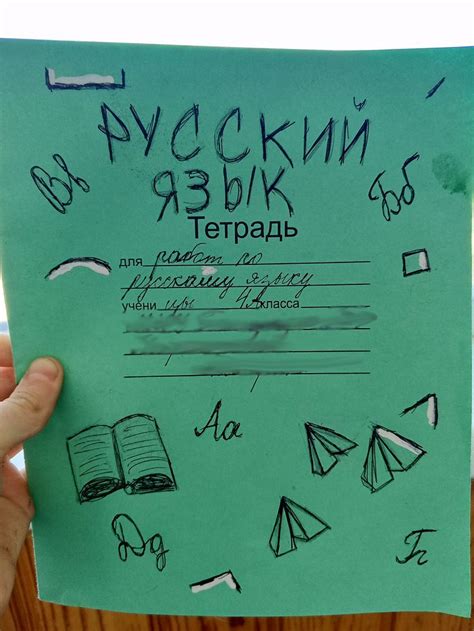 РУССКИЙ
ЯЗЫК
Вв
Бб
Тетрадь
для работ по
русскому языку
учени цы 4А класса
Аа
Дд
Гг